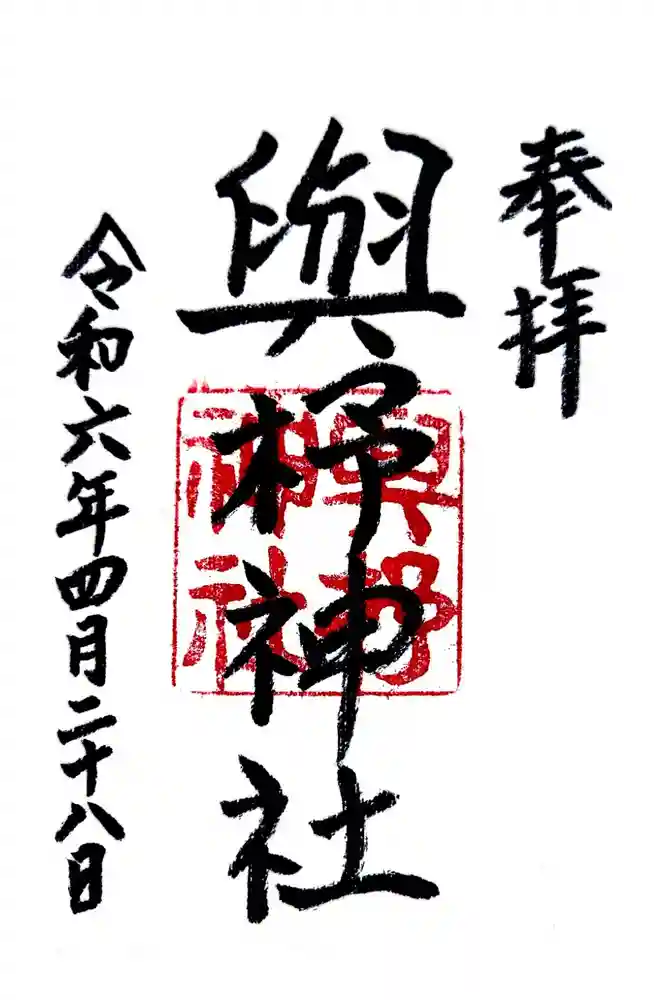 奉拝
與杼神社
與
神社
令和六年四月二十八日